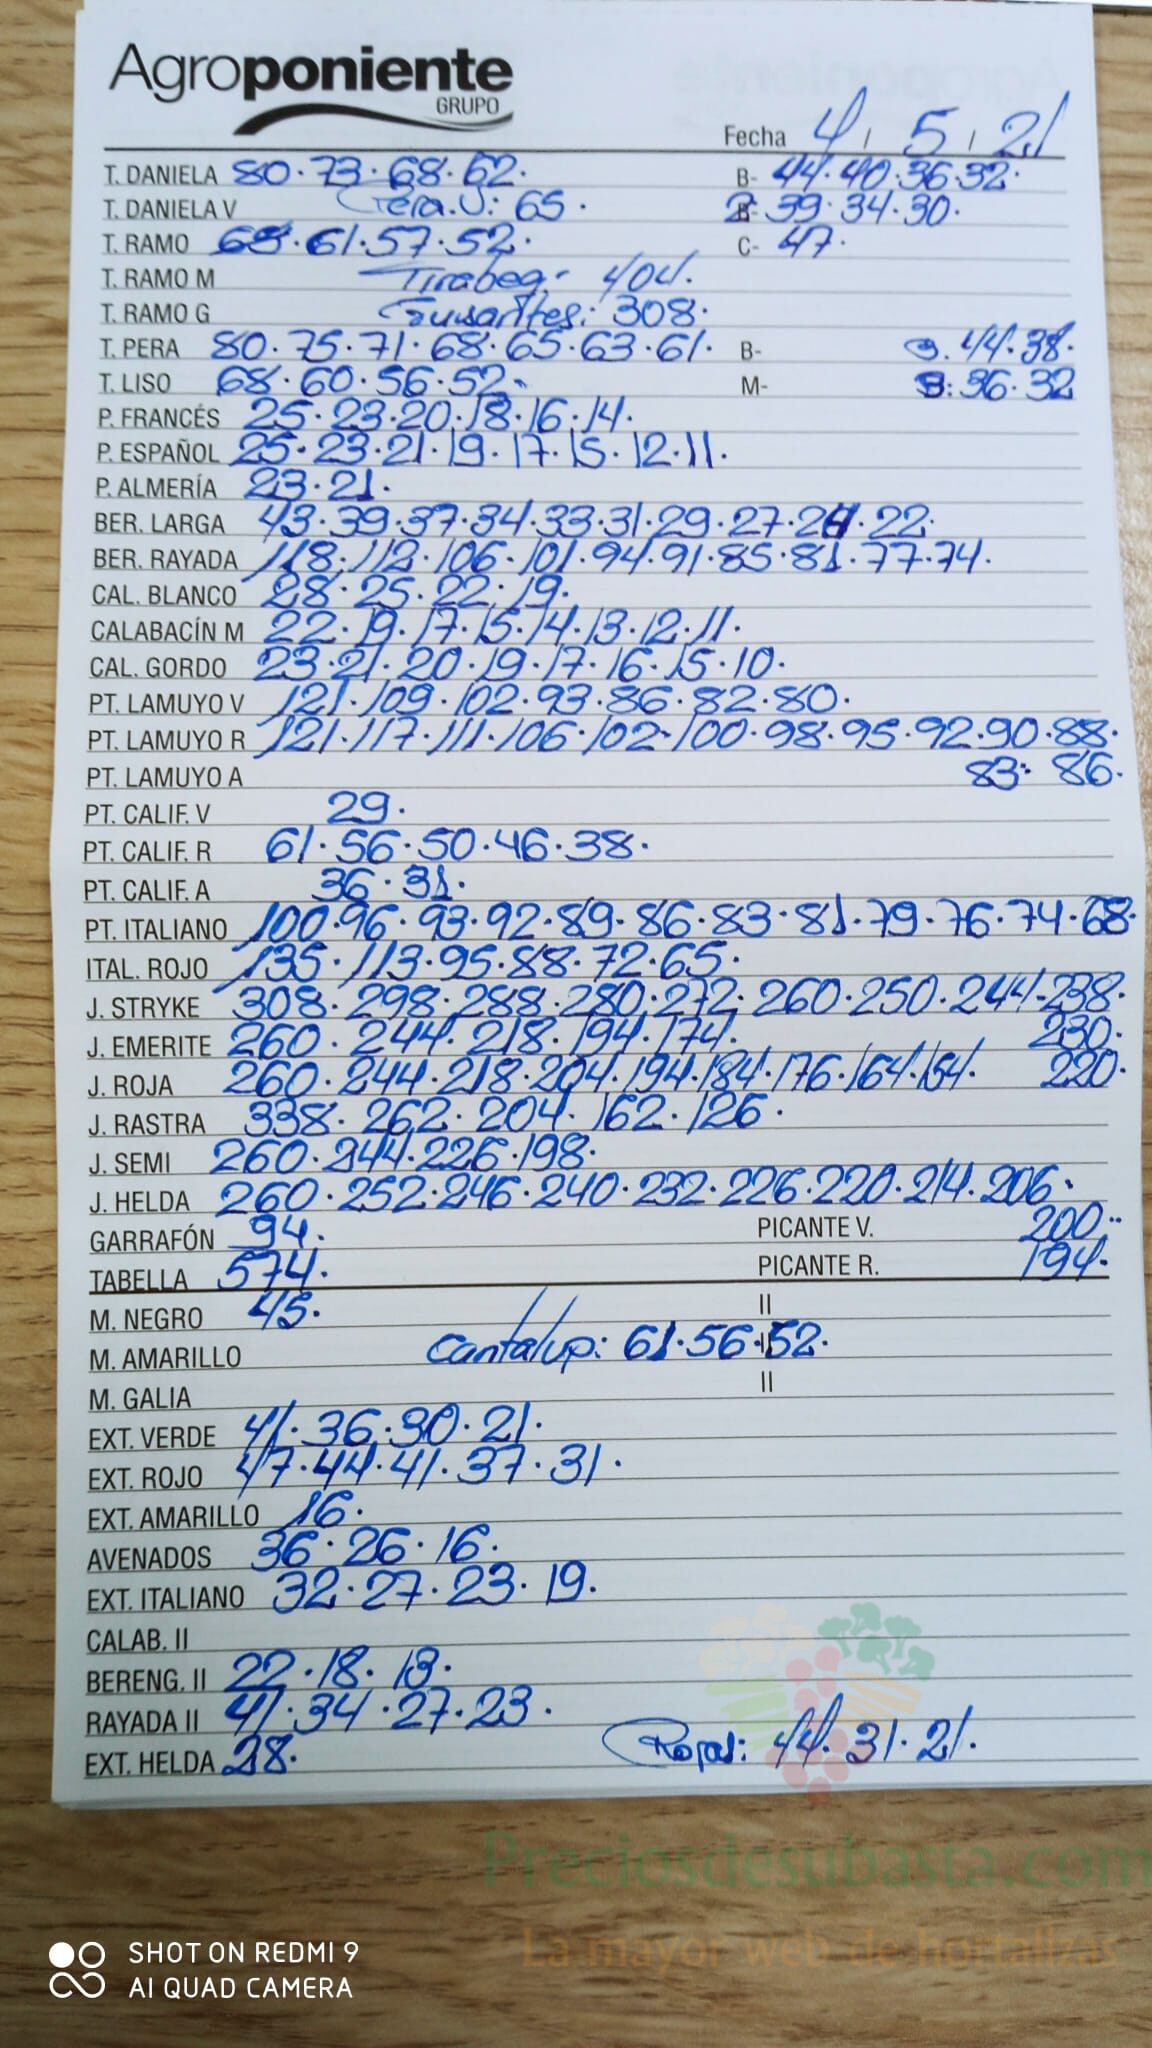 Agroponiente
GRUPO
Fecha 4 / 5 / 21
T. DANIELA 80·73·68·62· B- 44·40·36·32·
T. DANIELA V Pera.V: 65· 2- 39·34·30·
T. RAMO 68·61·57·52· C- 47·
T. RAMO M Tirabeq- 404·
T. RAMO G Guisantes: 308·
T. PERA 80·75·71·68·65·63·61· B- B. 44·38·
T. LISO 68·60·56·52· M- B: 36·32
P. FRANCÉS 25·23·20·18·16·14·
P. ESPAÑOL 25·23·21·19·17·15·12·11·
P. ALMERÍA 23·21·
BER. LARGA 43·39·37·34·33·31·29·27·24·22·
BER. RAYADA 118·112·106·101·94·91·85·81·77·74·
CAL. BLANCO 28·25·22·19·
CALABACÍN M 22·19·17·15·14·13·12·11·
CAL. GORDO 23·21·20·19·17·16·15·10·
PT. LAMUYO V 121·109·102·93·86·82·80·
PT. LAMUYO R 121·117·111·106·102·100·98·95·92·90·88·
PT. LAMUYO A 83· 86·
PT. CALIF. V 29·
PT. CALIF. R 61·56·50·46·38·
PT. CALIF. A 36·31·
PT. ITALIANO 100·96·93·92·89·86·83·81·79·76·74·68·
ITAL. ROJO 135·113·95·88·72·65·
J. STRYKE 308·298·288·280·272·260·250·244·238·
J. EMERITE 260·244·218·194·174· 230·
J. ROJA 260·244·218·204·194·184·176·164·154· 220·
J. RASTRA 338·262·204·162·126·
J. SEMI 260·244·226·198·
J. HELDA 260·252·246·240·232·226·220·214·206·
GARRAFÓN 94· PICANTE V. 200··
TABELLA 574· PICANTE R. 194·
M. NEGRO 45· II
M. AMARILLO Cantalup: 61·56·52·
M. GALIA II
EXT. VERDE 41·36·30·21·
EXT. ROJO 47·44·41·37·31·
EXT. AMARILLO 16·
AVENADOS 36·26·16·
EXT. ITALIANO 32·27·23·19·
CALAB. II
BERENG. II 22·18·13·
RAYADA II 41·34·27·23·
EXT. HELDA 28· Rojas: 44·31·21·
Preciosdesubasta.com
La mayor web de hortalizas
SHOT ON REDMI 9
AI QUAD CAMERA